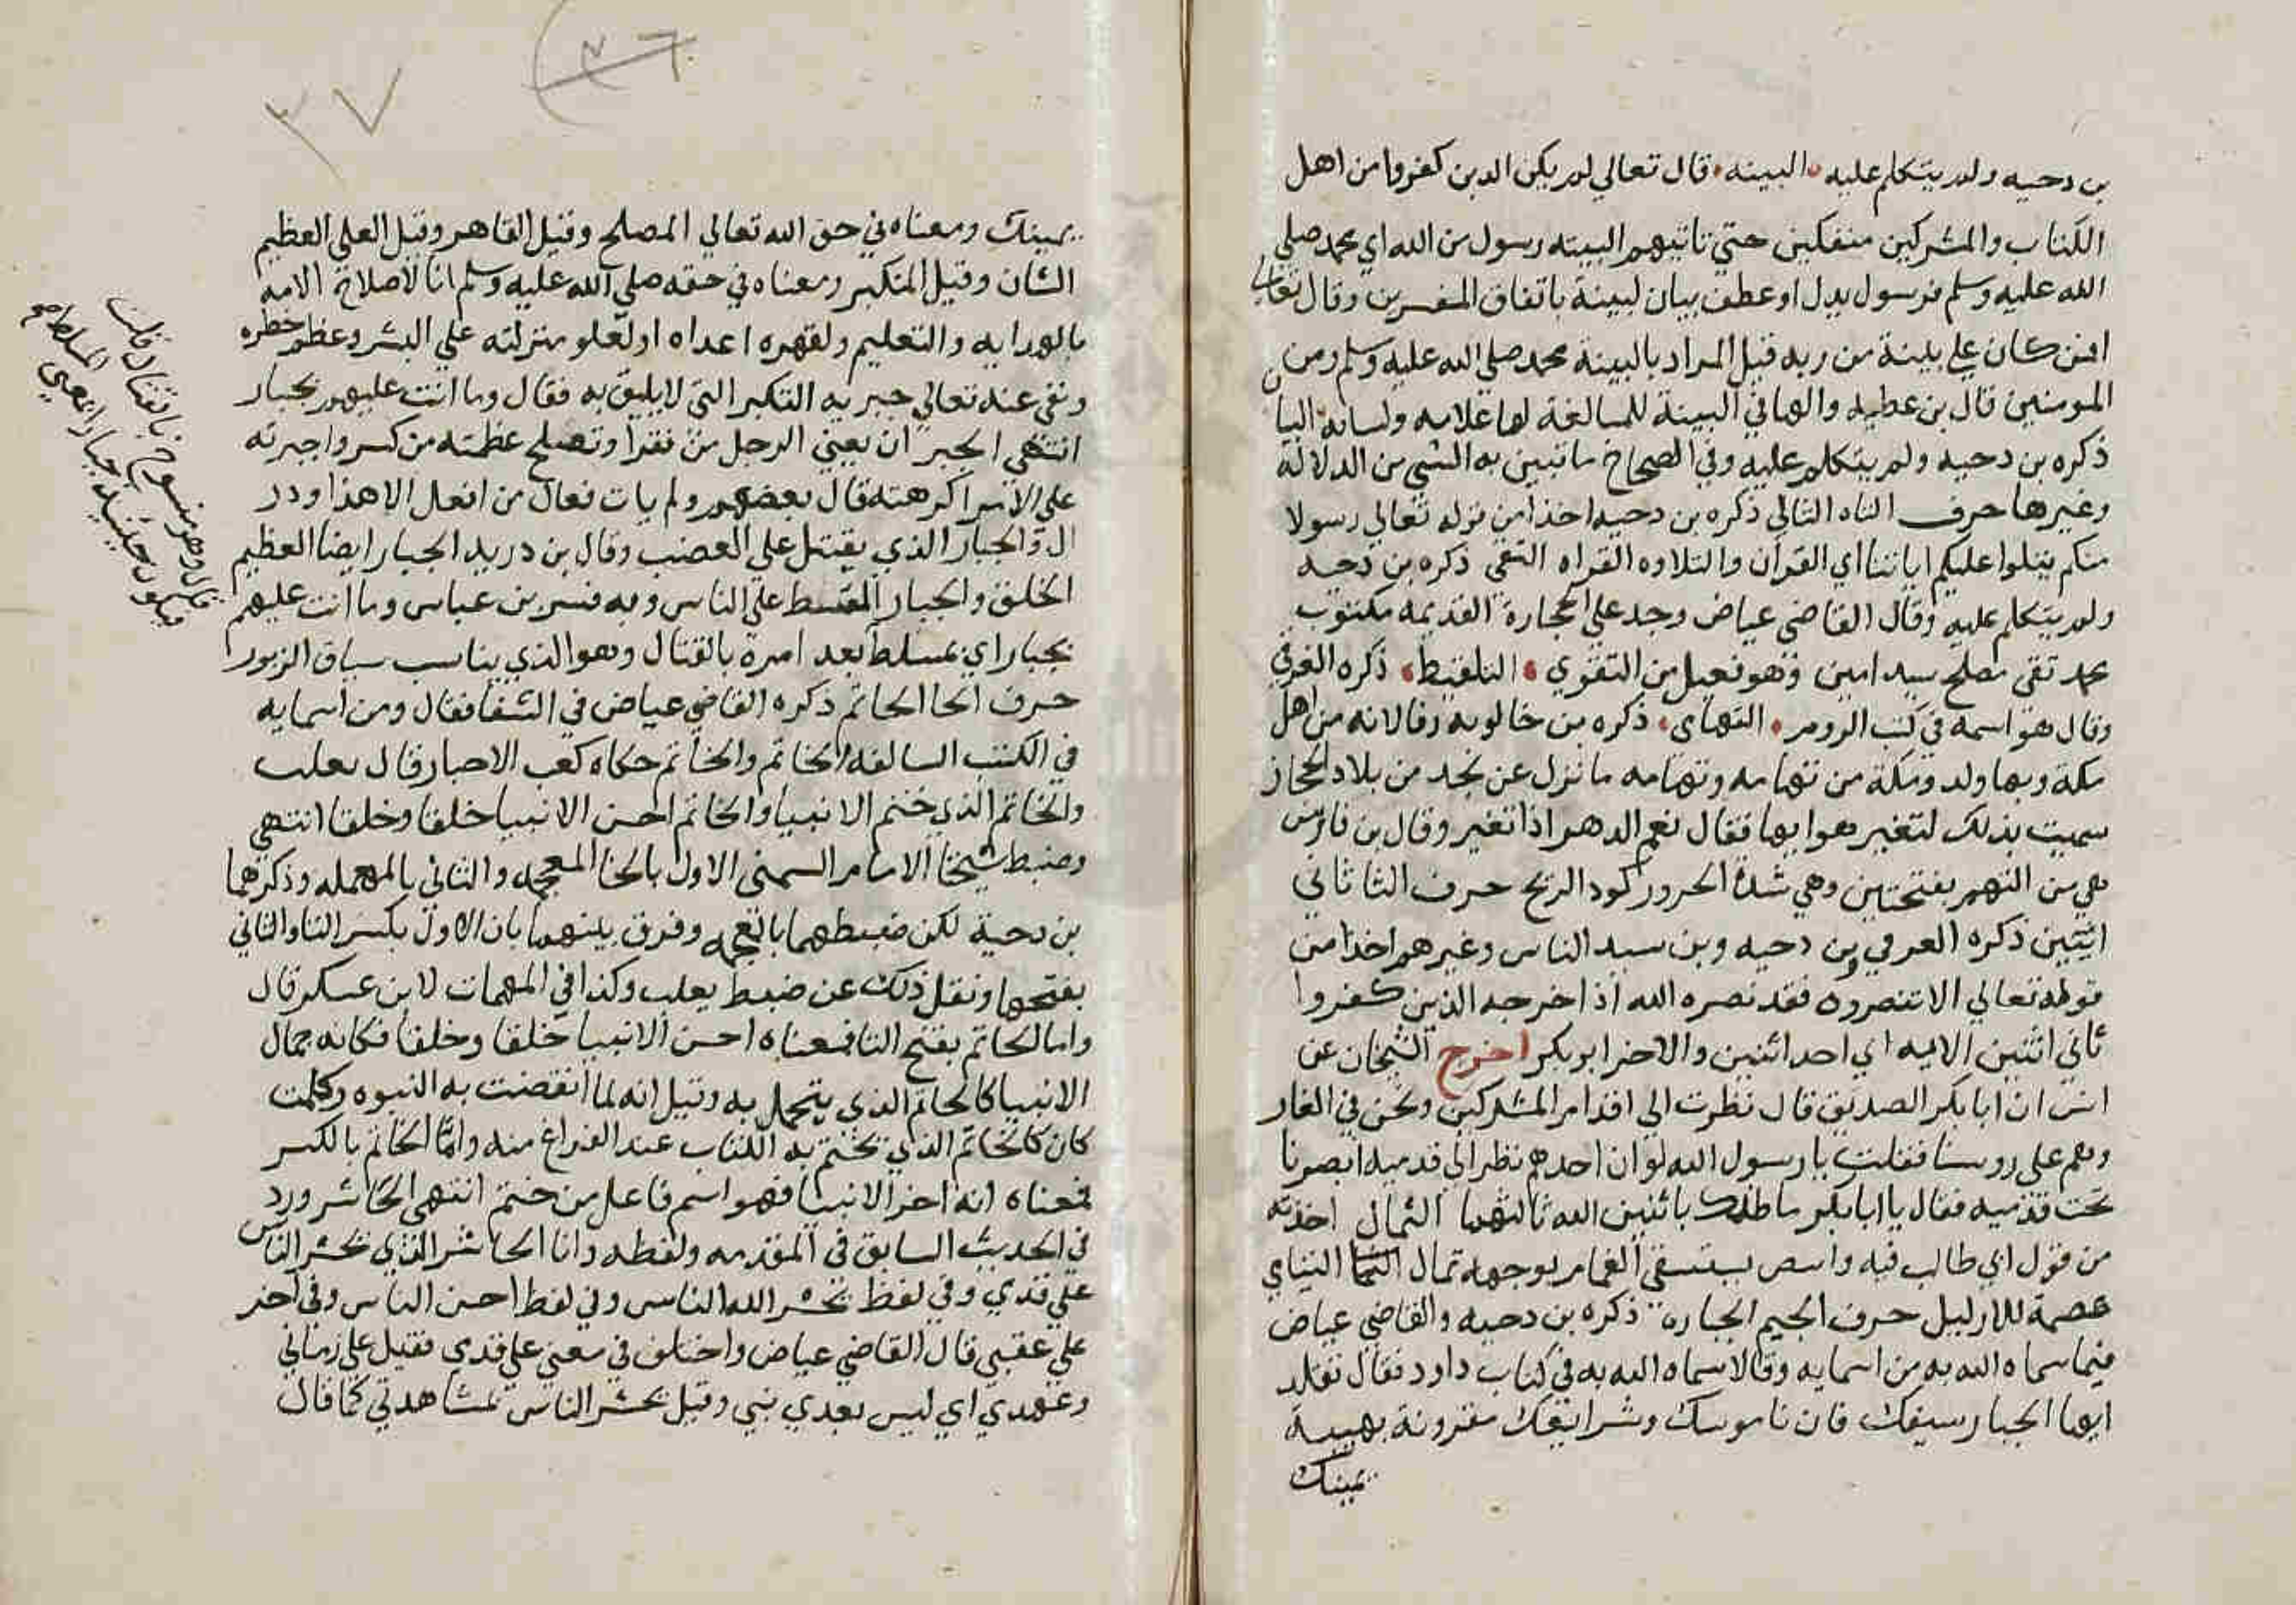 بن دحيه ولم يتكلم عليه البينه قال تعالي لم يكن الذين كفروا من اهل
الكتاب والمشركين منفكين حتي تاتيهم البينه رسول من الله اي محمد صلي
الله عليه وسلم فرسول بدل او عطف بيان لبينة باتفاق المفسرين وقال تعالي
افمن كان علي بينة من ربه قيل المراد بالبينة محمد صلي الله عليه وسلم ومن
المومنين قال بن عطيه والها في البينة للمبالغة لها علامه ولسانه البيان
ذكره بن دحيه ولم يتكلم عليه وفي الصحاح ما تبين به الشي من الدلالة
وغيرها حرف التاه التالي ذكره بن دحيه اخذا من قوله تعالي رسولا
منكم يتلوا عليكم اياتنا اي القران والتلاوه القراه التقي ذكره بن دحيه
ولم يتكلم عليه وقال القاضي عياض وجد علي الحجارة القديمه مكتوب
محمد تقي مصلح سيد امين وهو فعيل من التقوي التلقيط ذكره العزفي
وقال هو اسمه في كتب الروم التهامى ذكره بن خالويه وقال لانه من اهل
مكة وبها ولد ومكة من تهامه وتهامه ما نزل عن نجد من بلاد الحجاز
سميت بذلك لتغير هوايها فقال نهم الدهر اذا تغير وقال بن فارس
هي من التهم بفتحتين وهي شدة الحر وركود الريح حرف الثا ثاني
اثنين ذكره العزفي وبن دحيه وبن سيد الناس وغيرهم اخذا من
قوله تعالي الا تنصروه فقد نصره الله اذ اخرجه الذين كفروا
ثاني اثنين الايه اي احد اثنين والاخر ابو بكر اخرج الشيخان عن
انس ان ابا بكر الصديق قال نظرت الي اقدام المشركين ونحن في الغار
وهم علي روسنا فقلت يا رسول الله لو ان احدهم نظر الي قدميه ابصرنا
تحت قدميه فقال يا ابا بكر ما ظنك باثنين الله ثالثهما الثمال اخذته
من قول ابي طالب فيه وابيض يستسقي الغمام بوجهه ثمال اليتامي
عصمة للارامل حرف الجيم الجباره ذكره بن دحيه والقاضي عياض
فيما سماه الله به من اسمايه وقالا سماه الله به في كتاب داود فقال تقلد
ايها الجبار سيفك فان ناموسك وشرايعك مقرونة بهيبة
يمينك
يمينك ومعناه في حق الله تعالي المصلح وقيل القاهر وقيل العلي العظيم
الشان وقيل المتكبر ومعناه في حقه صلي الله عليه وسلم اما لاصلاح الامه
بالهدايه والتعليم ولقهره اعداه او لعلو منزلته علي البشر وعظم خطره
ونفي عنه تعالي جبريه التكبر التي لا يليق به فقال وما انت عليهم بجبار
انتهي الجبر ان يعني الرجل من فقر او تصلح عظمته من كسر واجبرته
علي الامر اكرهته قال بعضهم ولم يات فعال من افعل الا هذا ودر
اك والجبار الذي يقتل علي الغضب وقال بن دريد الجبار ايضا العظيم
الخلق والجبار المقسط علي الناس وبه فسر بن عباس وما انت عليهم
بجبار اي بمسلط بعد امره بالقتال وهو الذي يناسب سياق الزبور
حرف الحا الحاتم ذكره القاضي عياض في الشفا فقال ومن اسمايه
في الكتب السالفه الخاتم والحاتم حكاه كعب الاحبار قال ثعلب
والخاتم الذي ختم الانبيا والحاتم احسن الانبيا خلقا وخلقا انتهي
وضبط شيخنا الامام الشمني الاول بالخا المعجمه والثاني بالمهمله وذكرهما
بن دحية لكن ضبطهما بالمعجمه وفرق بينهما بان الاول بكسر التا والثاني
بفتحها ونقل ذلك عن ضبط ثعلب وكذا في المهمات لابن عسكر قال
واما الخاتم بفتح التا فمعناه احسن الانبيا خلقا وخلقا فكانه جمال
الانبيا كالخاتم الذي يتجمل به وقيل انه لما انقضت به النبوه وكملت
كان كالخاتم الذي يختم به الكتاب عند الفراغ منه واما الخاتم بالكسر
فمعناه انه اخر الانبيا فهو اسم فاعل من ختم انتهي الحاشر ورد
في الحديث السابق في المقدمه ولفظه وانا الحاشر الذي يحشر الناس
علي قدمي وفي لفظ يحشر الله الناس وفي لفظ احسن الناس وفي آخر
علي عقبي قال القاضي عياض واختلف في معني علي قدمي فقيل علي زماني
وعهدي اي ليس بعدي نبي وقيل يحشر الناس بمشاهدتي كما قال